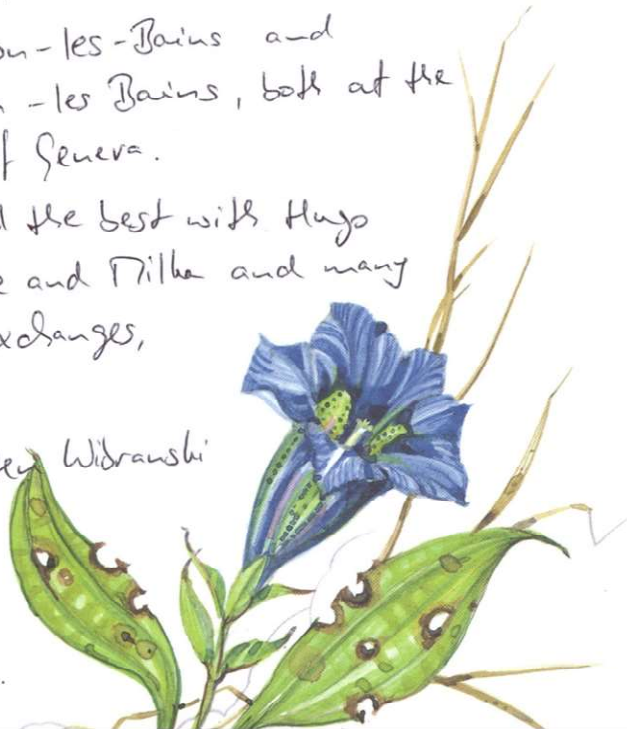 on-les-Bains and
-les Bains, both at the
f Geneva.
the best with Hugo
and Milka and many
xchanges,
Widranski